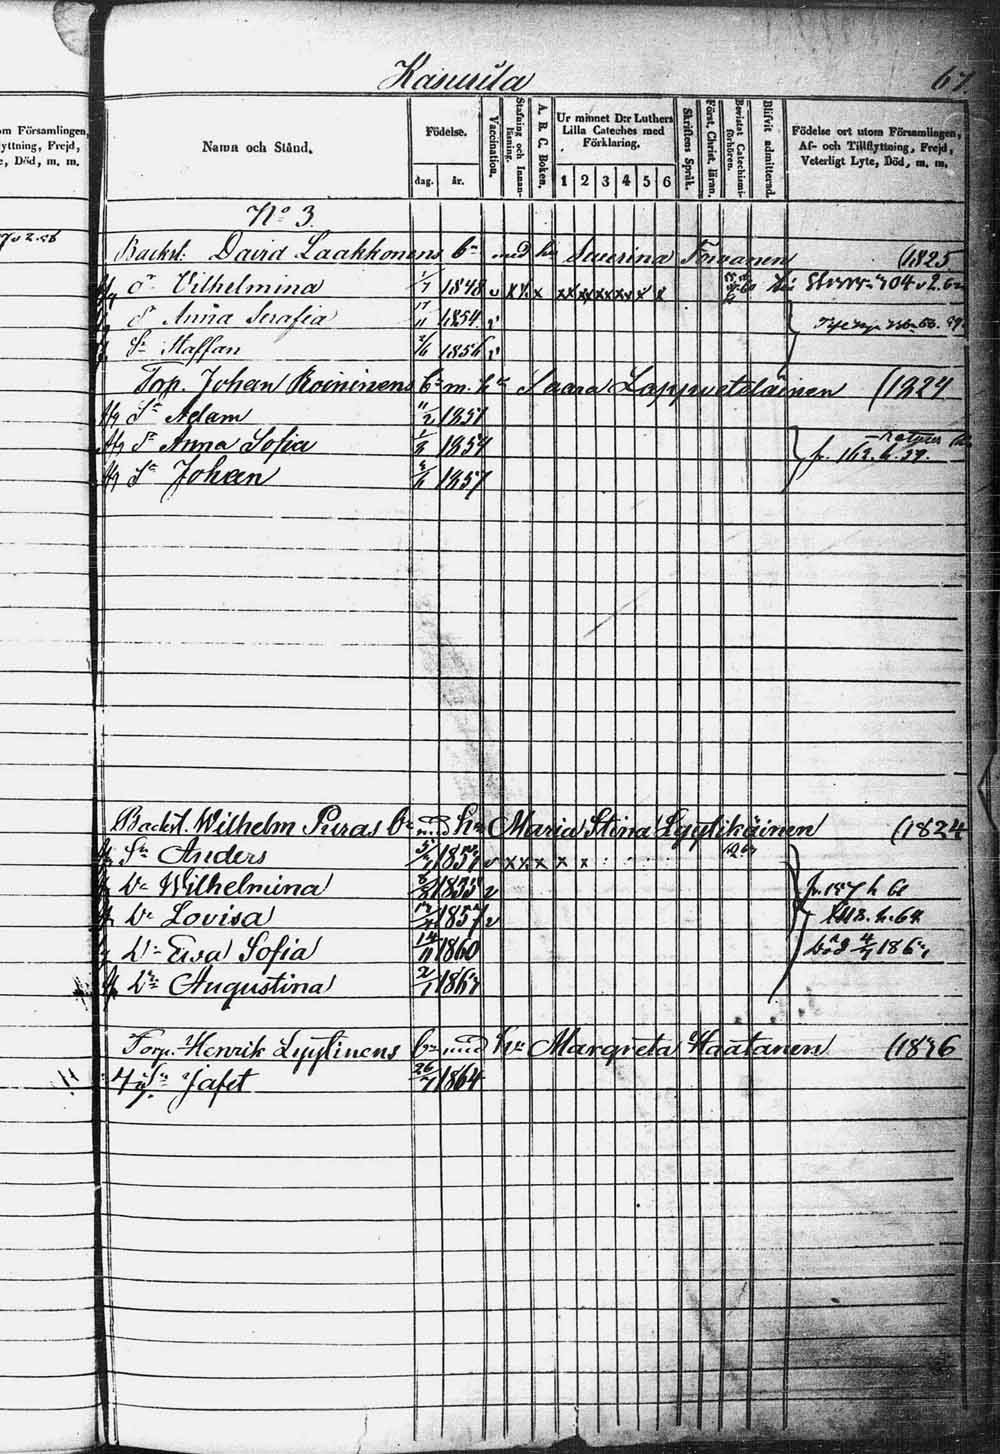 Kasurila
67.
om Församlingen,
yttning, Frejd,
e, Död, m. m.
Namn och Stånd.
Födelse.
dag. år.
Vaccination.
Stafning och Innanläsning.
A. B. C. Boken.
Ur minnet D:r Luthers
Lilla Cateches med
Förklaring.
1 2 3 4 5 6
Skriftens Språk.
Först. Christ. läran.
Bevistat Catechismiförhören.
Blifvit admitterad.
Födelse ort utom Församlingen,
Af- och Tillflyttning, Frejd,
Veterligt Lyte, Död, m. m.
No 3.
Backst. David Laakkonens bn med hu Severina Toivanen (1825
Dr Vilhelmina 1/7 1848 v x x x x x x x x x x
Dr Anna Serafia 17/11 1854
Sn Staffan 1856
Torp. Johan Roininens bn m. hu Saara Lappveteläinen (1824
Sn Adam 11/2 1851
Dr Anna Sofia 1854
Sn Johan 1857
fr. 162. h. 59.
Backst. Wilhelm Puras bn med hu Maria Stina Lyytikäinen (1824
Sn Anders 1851 v x x x x x
Dr Wilhelmina 1855 v
fr. 187 h 61
Dr Lovisa 1857 v
h. 64
Dr Ewa Sofia 14/11 1860
Dr Augustina 2/1 1867
Torp. Henrik Lyytinens bn med hu Margreta Haatanen (1836
Sn Jafet 26/7 1864